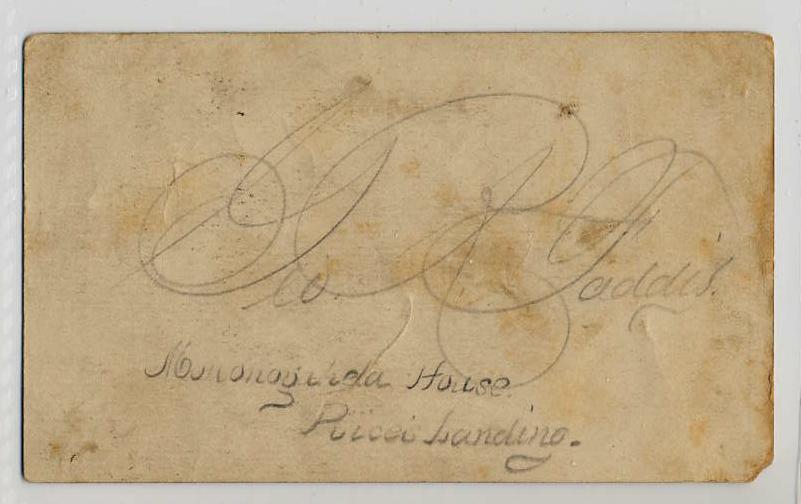 Geo R Faddis.
Monongahela House.
Rices Landing.